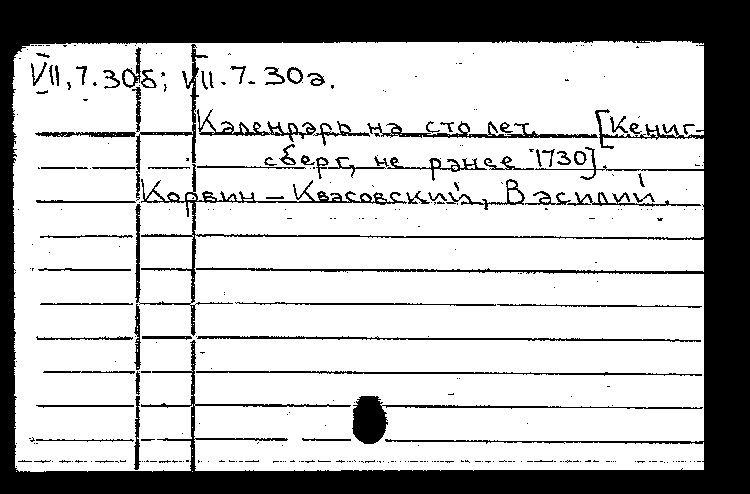 VII,7.30б; VII.7-30а.
Календарь на сто лет. [Кениг-
сберг, не ранее 1730].
Корвин – Квасовский, Василий.